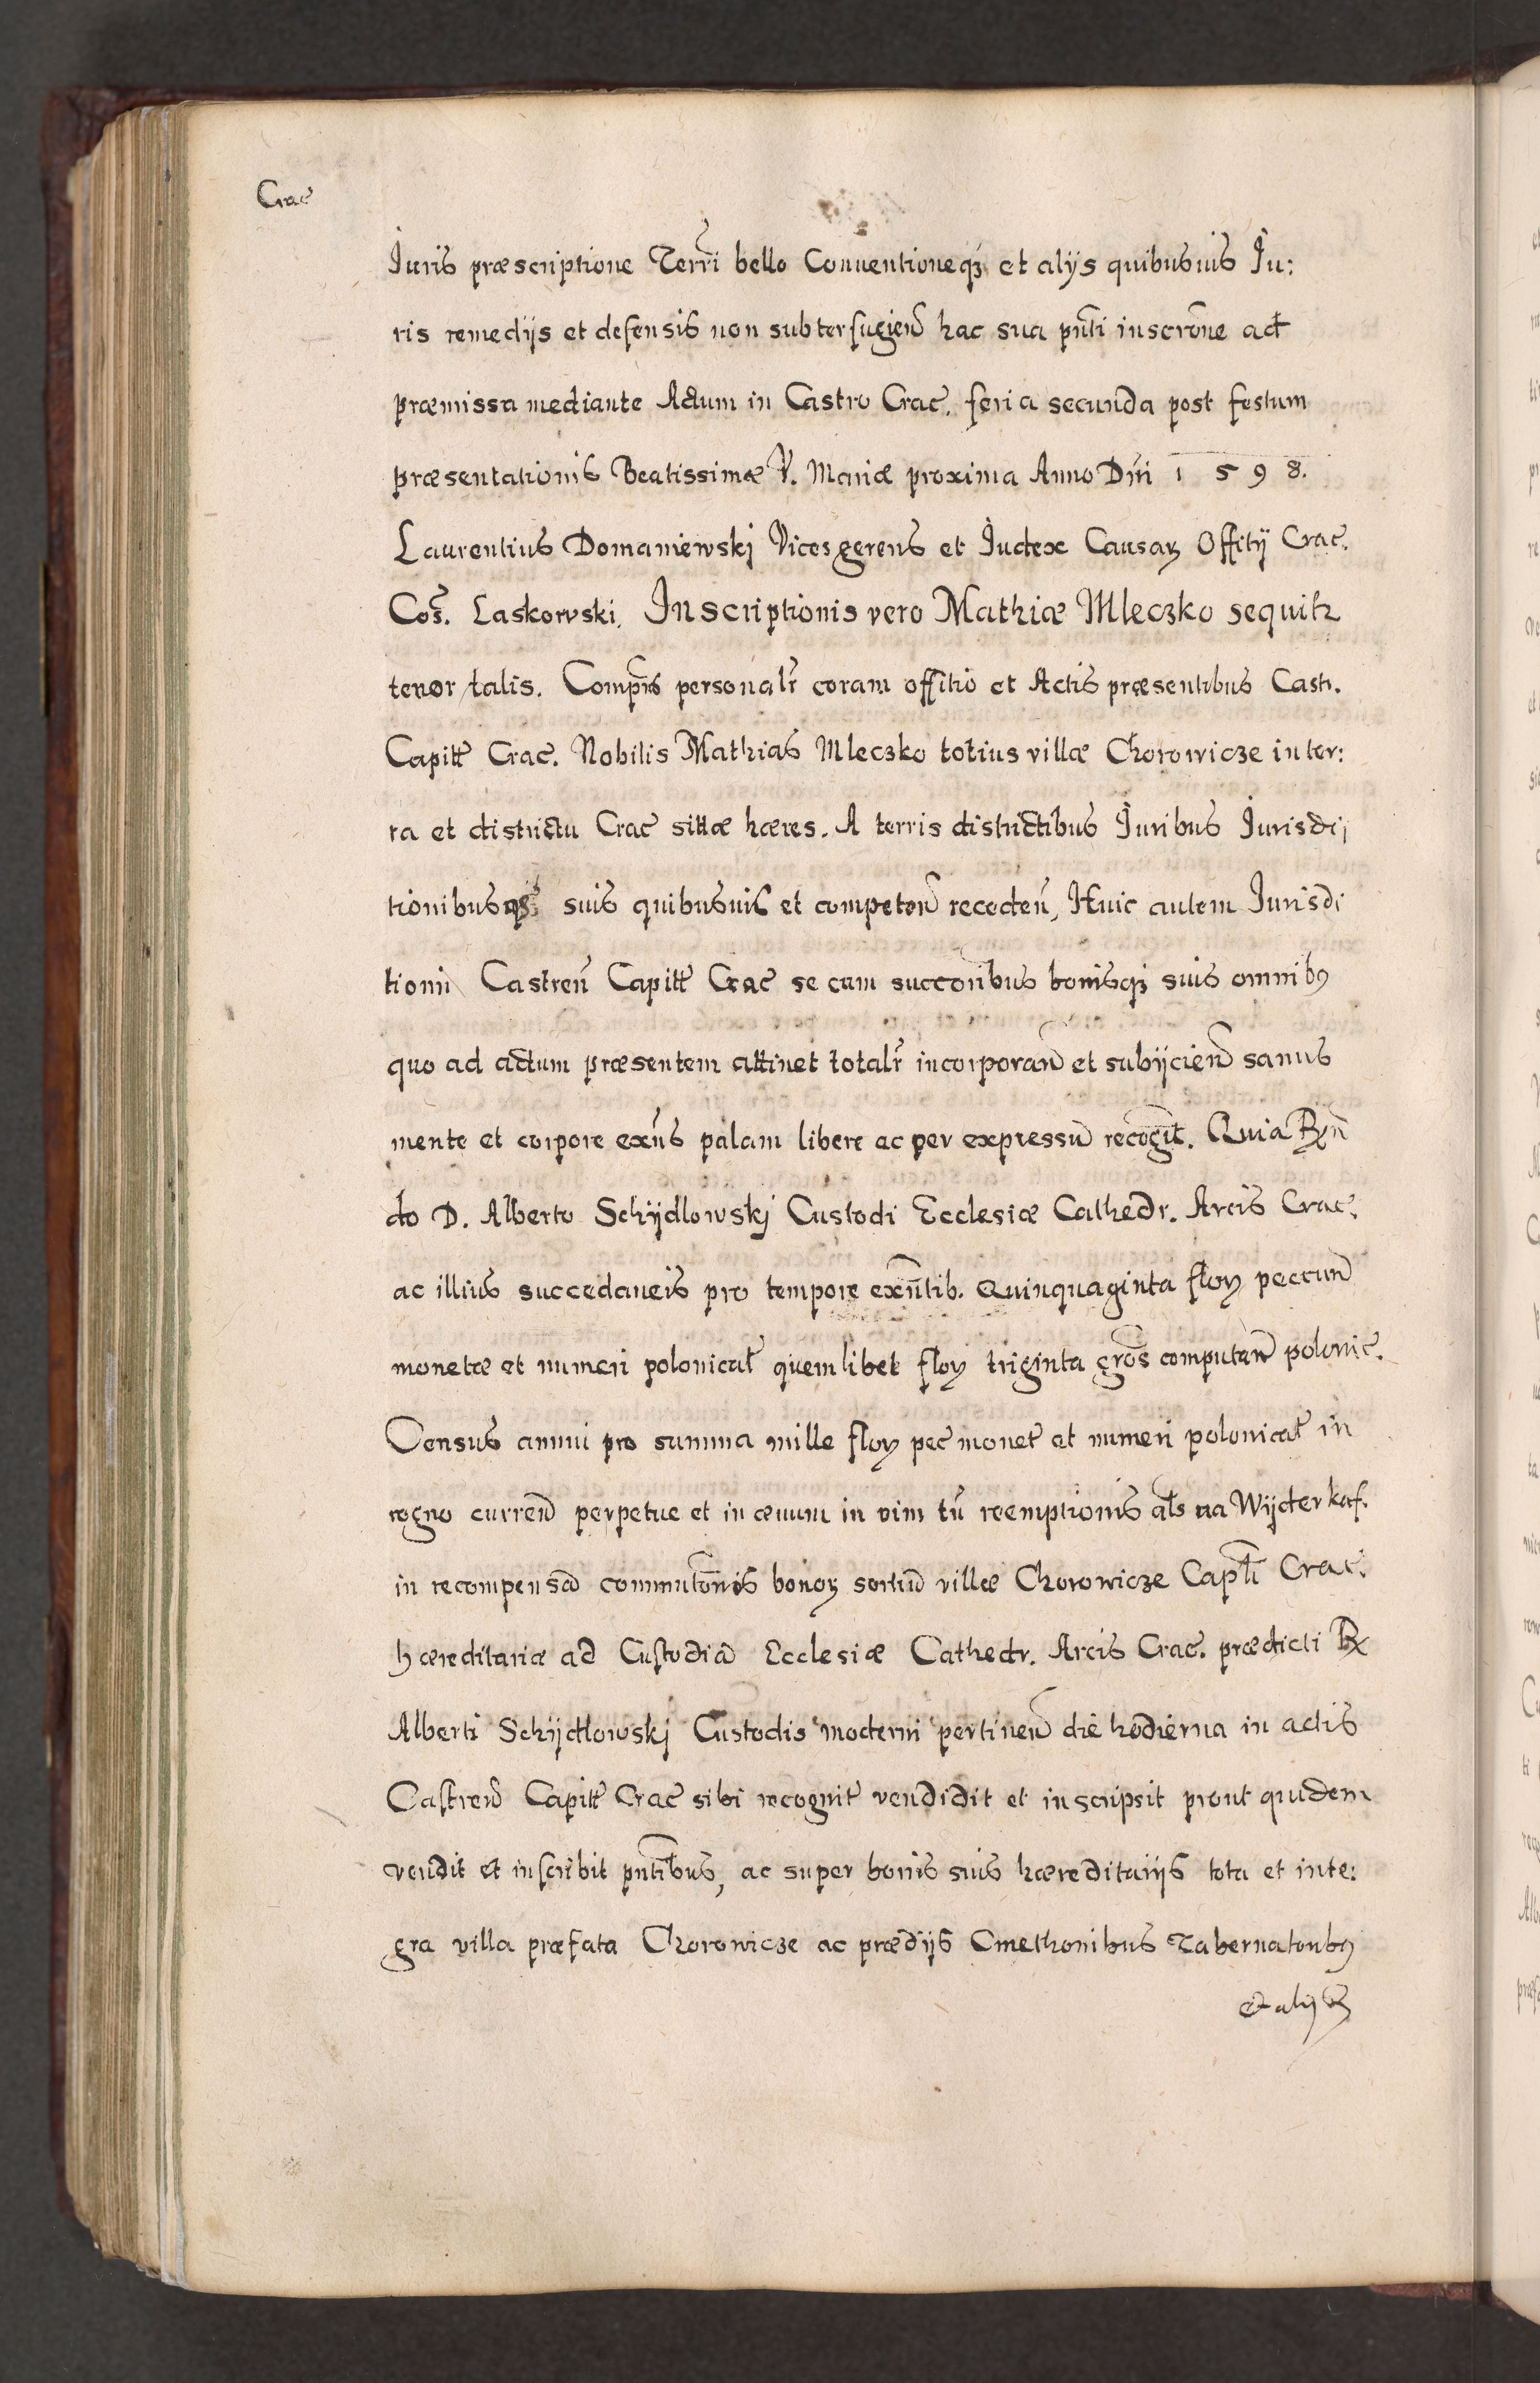 Crac
Juris præscriptione Terri bello Conuentioneq3 et alijs quibusuis Ju:
ris remedijs et defensis non subterfugien hac sua pnti inscrone ad
præmissa mediante Actum in Castro Crac. feria secunda post festum
præsentationis Beatissimæ V. Mariæ proxima Anno Dni 1598.
Laurentius Domaniewskj Vicesgerens et Judex Causaꝝ Offitij Crac.
Cos. Laskowski. Inscriptionis vero Mathiæ Mleczko sequitꝛ
tenor talis. Compns personalr coram offitio et Actis præsentibus Castr.
Capitt Crac. Nobilis Mathias Mleczko totius villæ Chorowicze in ter:
ra et districtu Crac sittæ hæres. A terris districtibus Juribus Jurisdi
tionibusq3 suis quibusuis et competen receden, Huic autem Jurisdi
tioni Castren Capitt Crac se cum succoribus bonisq3 suis omnibꝯ
quo ad actum præsentem attinet totalr incorporan et subijcien sanus
mente et corpore exns palam libere ac per expressu recognt. Quia Rn
do D. Alberto Schijdlowskj Custodi Ecclesiæ Cathedr. Arcis Crac.
ac illius succedaneis pro tempore exntib. Quinquaginta floꝝ peccun
monetæ et numeri polonical quemlibet floꝝ triginta gros computan polonic.
Census annui pro summa mille floꝝ pec monet et numeri polonicat in
regno curren perpetue et in æuum in vim tn reemptionis als na Wijderkaf.
in recompensa commutonis bonoꝝ sortiu villæ Chorowicze Captt Crac.
hæreditariæ ad Custodia Ecclesiæ Cathedr. Arcis Crac. prædicti R
Alberti Schijdlowskj Custodis moderni pertinen die hodierna in actis
Castren Capitt Crac sibi recognit vendidit et inscripsit prout quidem
vendit et inscribit pntibus, ac super bonis suis hæreditarijs tota et inte:
gra villa præfata Chorowicze ac prædijs Cmethonibus Tabernatoribꝯ
et alijs